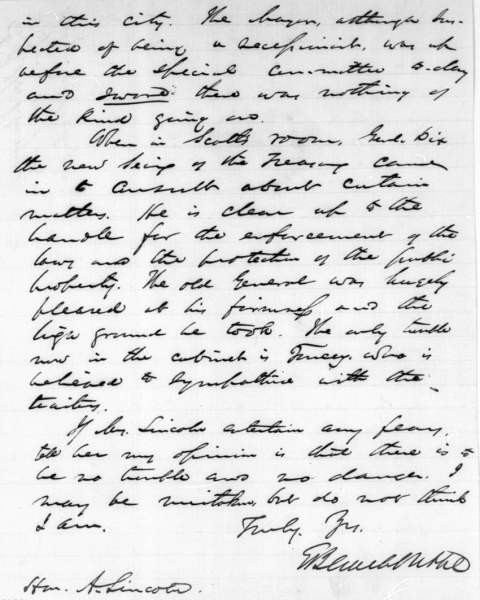 in this city. The Mayor, although sus-
pected of being a secessionist, was up
before the special committee to-day
and swore there was nothing of
the kind going on.
When in Scott's room, Genl. Dix
the new Secy of the Treasury came
in to consult about certain
matters. He is clean up to the
handle for the enforcement of the
laws and the protection of the public
property. The old General was hugely
pleased at his firmness and the
high ground he took. The only trouble
now in the cabinet is Toucey, who is
believed to sympathise with the
traitors.
If Mrs. Lincoln entertain any fears,
tell her my opinion is that there is to
be no trouble and no danger. I
may be mistaken, but do not think
I am.
Truly Yrs.
E B Washburne
Hon. A. Lincoln.